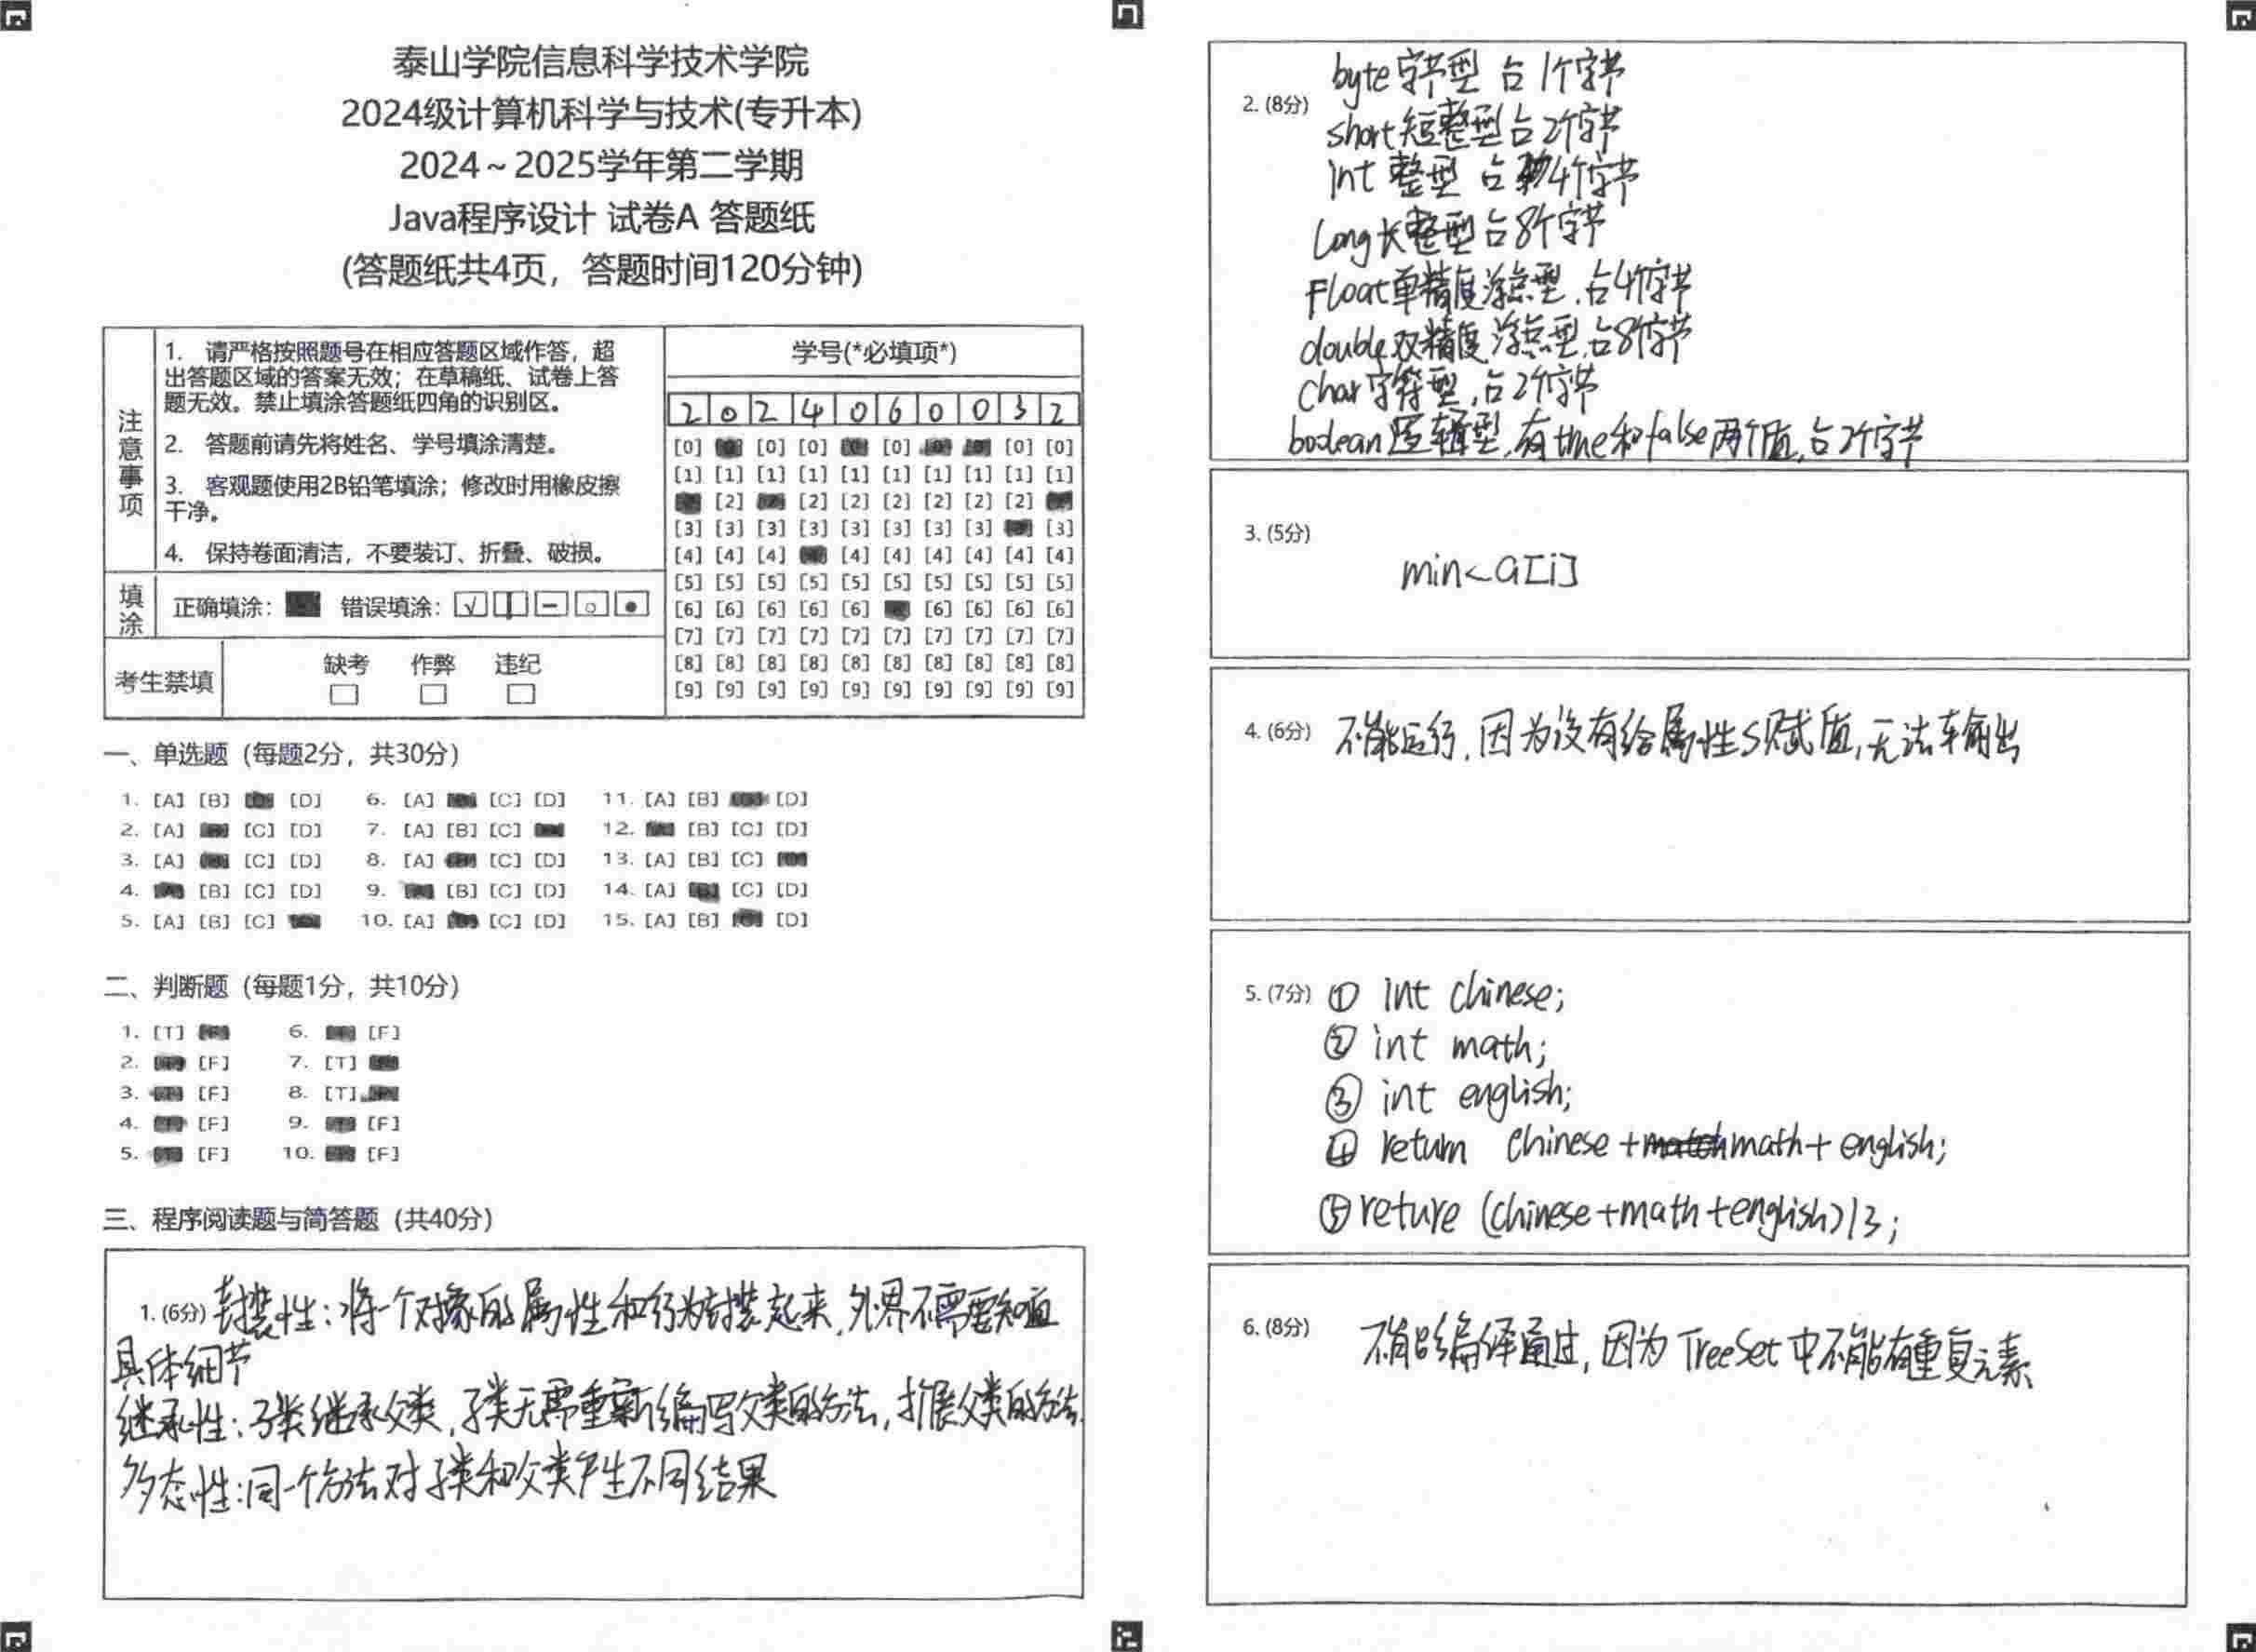 泰山学院信息科学技术学院
2024级计算机科学与技术(专升本)
2024～2025学年第二学期
Java程序设计 试卷A 答题纸
(答题纸共4页，答题时间120分钟)
注意事项
1. 请严格按照题号在相应答题区域作答，超
出答题区域的答案无效；在草稿纸、试卷上答
题无效。禁止填涂答题纸四角的识别区。
2. 答题前请先将姓名、学号填涂清楚。
3. 客观题使用2B铅笔填涂；修改时用橡皮擦
干净。
4. 保持卷面清洁，不要装订、折叠、破损。
填涂
正确填涂： 错误填涂：
考生禁填
缺考 作弊 违纪
学号(*必填项*)
2 0 2 4 0 6 0 0 3 2
[0] [0] [0] [0] [0] [0]
[1] [1] [1] [1] [1] [1] [1] [1] [1] [1]
[2] [2] [2] [2] [2] [2] [2]
[3] [3] [3] [3] [3] [3] [3] [3] [3]
[4] [4] [4] [4] [4] [4] [4] [4] [4]
[5] [5] [5] [5] [5] [5] [5] [5] [5] [5]
[6] [6] [6] [6] [6] [6] [6] [6] [6]
[7] [7] [7] [7] [7] [7] [7] [7] [7] [7]
[8] [8] [8] [8] [8] [8] [8] [8] [8] [8]
[9] [9] [9] [9] [9] [9] [9] [9] [9] [9]
一、单选题（每题2分，共30分）
1. [A] [B] [D] 6. [A] [C] [D] 11. [A] [B] [D]
2. [A] [C] [D] 7. [A] [B] [C] 12. [B] [C] [D]
3. [A] [C] [D] 8. [A] [C] [D] 13. [A] [B] [C]
4. [B] [C] [D] 9. [B] [C] [D] 14. [A] [C] [D]
5. [A] [B] [C] 10. [A] [C] [D] 15. [A] [B] [D]
二、判断题（每题1分，共10分）
1. [T] 6. [F]
2. [F] 7. [T]
3. [F] 8. [T]
4. [F] 9. [F]
5. [F] 10. [F]
三、程序阅读题与简答题（共40分）
1. (6分) 封装性：将一个对象的属性和行为封装起来，外界不需要知道
具体细节
继承性：子类继承父类，子类无需重新编写父类的方法，扩展父类的方法.
多态性：同一个方法对子类和父类产生不同结果
2. (8分)
byte字节型 占1个字节
short短整型占2个字节
int 整型 占4个字节
long长整型占8个字节
Float单精度浮点型，占4个字节
double双精度浮点型，占8个字节
Char字符型，占2个字节
boolean逻辑型，有true和false两个值，占2个字节
3. (5分)
min<a[i]
4. (6分) 不能运行，因为没有给属性S赋值，无法车输出
5. (7分) ① int chinese;
② int math;
③ int english;
④ return chinese+math+english;
⑤ reture (chinese+math+english)/3;
6. (8分) 不能编译通过，因为TreeSet中不能有重复元素